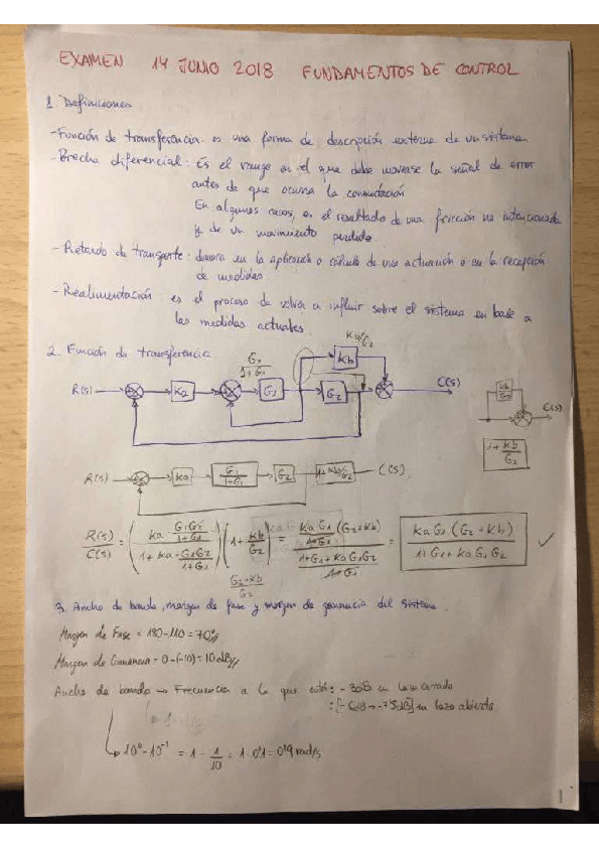 EXAMEN 14 JUNIO 2018 FUNDAMENTOS DE CONTROL
1. Definiciones
- Función de transferencia: es una forma de descripción externa de un sistema
- Brecha diferencial: Es el rango en el que debe moverse la señal de error
antes de que ocurra la conmutación
En algunos casos, es el resultado de una fricción no intencionada
y de un movimiento perdido.
- Retardo de transporte: demora en la aplicación o cálculo de una actuación o en la recepción
de medidas
- Realimentación: es el proceso de volver a influir sobre el sistema en base a
las medidas actuales.
2. Función de transferencia.
G1/(1+G1)
Kb/G2
Kb
R(s) G1 G2 C(s)
Kb/G2
C(s)
1+Kb/G2
R(s) Ka G1/(1+G1) G2 1+Kb/G2 C(s)
R(s)/C(s) = (Ka·G1G2/(1+G1) / (1+Ka·G1G2/(1+G1))) (1+Kb/G2) = (KaG1(G2+Kb)/(1+G1)) / ((1+G1+KaG1G2)/(1+G1)) = KaG1(G2+Kb) / (1+G1+KaG1G2) ✓
(G2+Kb)/G2
3. Ancho de banda, margen de fase y margen de ganancia del sistema.
Margen de Fase = 180-110 = 70º//
Margen de Ganancia = 0-(-10) = 10dB//
Ancho de banda → Frecuencia a la que esté: -3dB en lazo cerrado
: [-6dB → -7'5dB] en lazo abierto.
10⁰-10⁻¹ = 1 - 1/10 = 1-0'1 = 0'9 rad/s
1